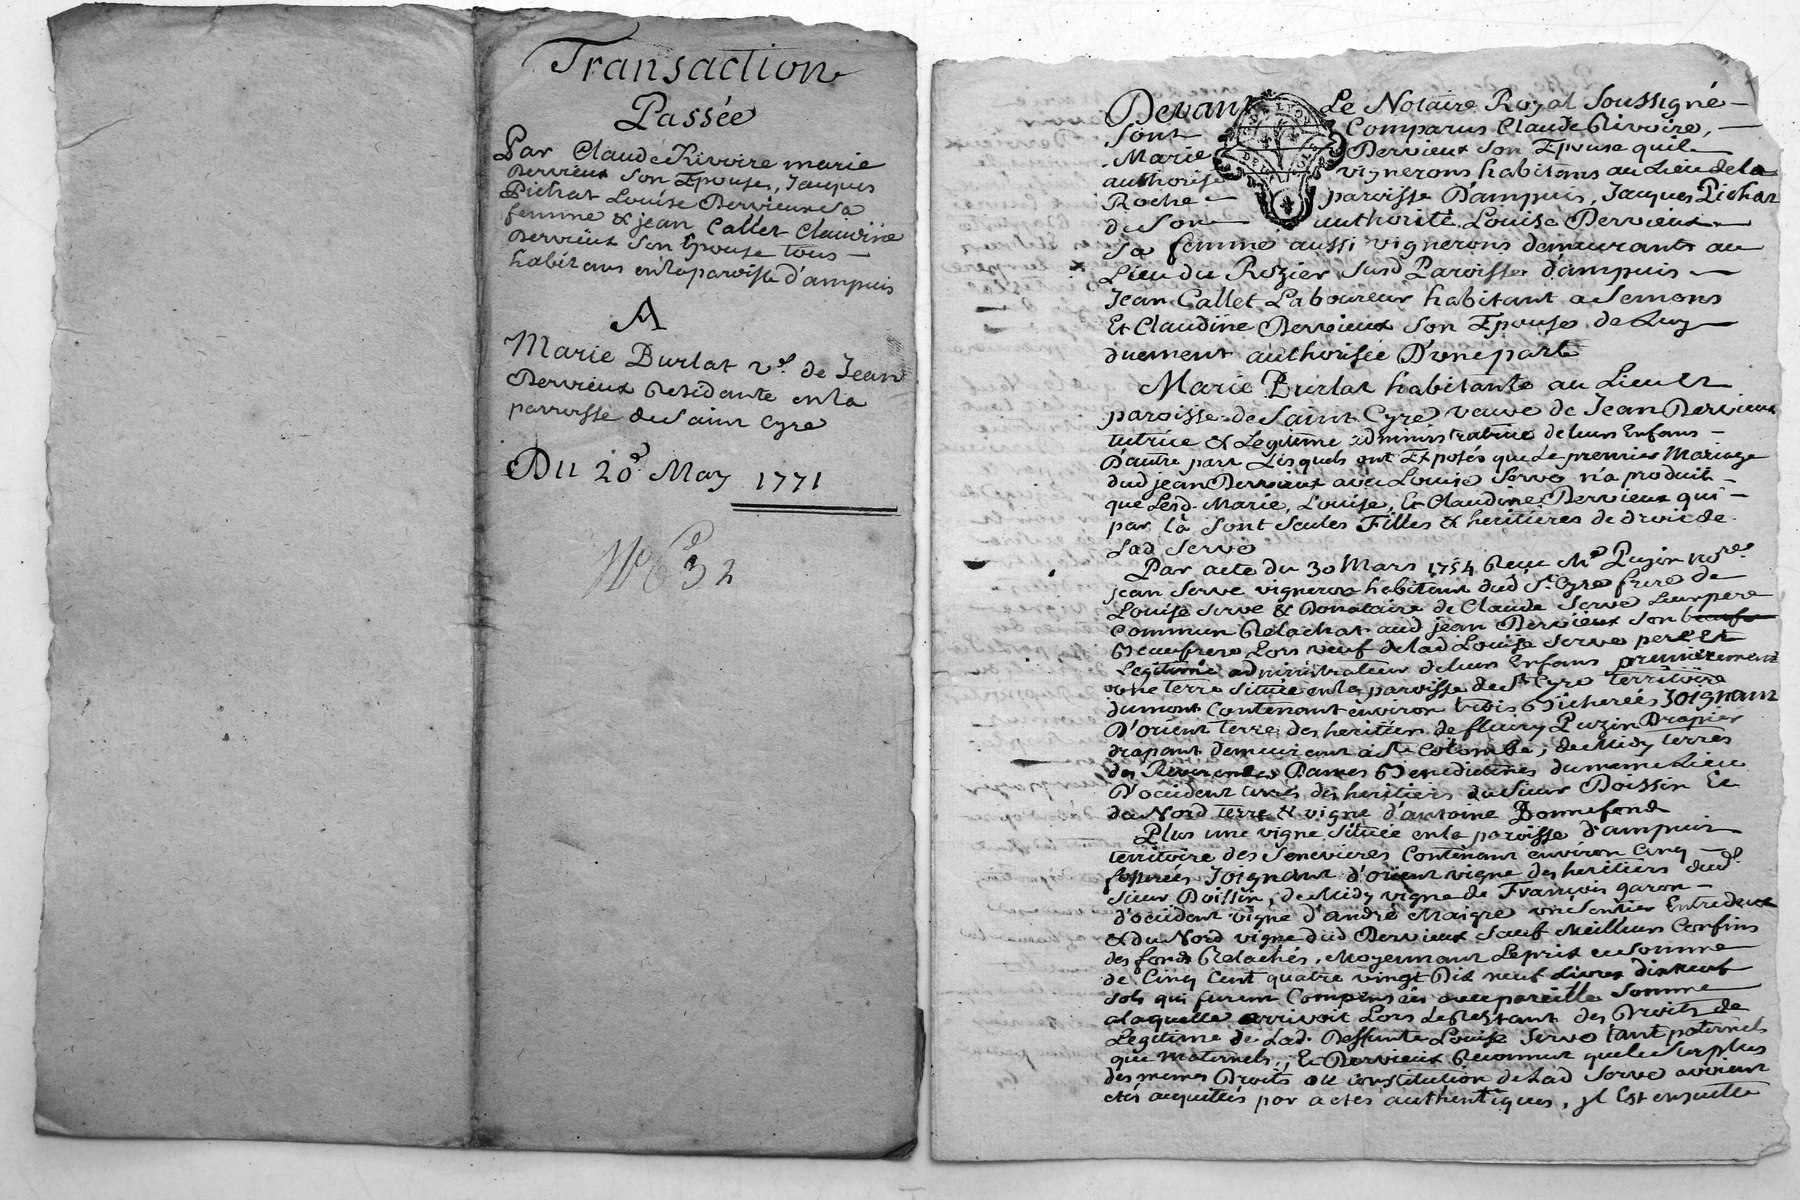 Transaction
Passée
Par Claude Rivoire marie
Dervieux Son Epouse, Jacques
Pichat Louise Dervieux Sa
femme & jean Callet Claudine
Dervieux Son Epouse tous
habitans en la paroisse d'ampuis
A
Marie Burlat ve. de Jean
Dervieux Residante en la
parroisse de Saint Cyre
Du 20e. May 1771
32
Devant Le Notaire Royal Soussigné
Sont Comparus Claude Rivoire,
Marie Dervieux Son Epouse quil
authorise vignerons habitans au Lieu de la
Roche paroisse D'ampuis, Jacques Pichat
du Son authorité Louise Dervieux
Sa femme aussi vignerons demeurants au
Lieu du Rozier Susd Paroisse d'ampuis
Jean Callet Laboureur habitant a Semons
Et Claudine Dervieux Son Epouse de Luy
duement authorisée D'une part
Marie Burlat habitante au Lieu Et
paroisse de Saint Cyre veuve de Jean Dervieux
tutrice & Legitime administratrice de leurs Enfans
D'autre part Lesquels ont Exposés que Le premier Mariage
dud jean Dervieux avec Louise Serve n'a produit
que Lesd. Marie, Louise, Et Claudine Dervieux qui
par là Sont Seules Filles & heritieres de droit de
Lad Serve
Par acte du 30 Mars 1754 Reçu Me Puzin Nore.
jean Serve vigneron habitant dud St. Cyre frere de
Louise Serve & Donataire de Claude Serve Leur pere
commun Relachat aud jean Dervieux Son
Beaufrere Lors veuf de lad Louise Serve pere Et
Legitime administrateur de leurs Enfans premierement
une terre Située en la paroisse de St. Cyre territoire
du mont Contenant environ trois Bicherées Joignant
D'orient terre des heritiers de fleury Puzin Drapier
drapant demeurant à Ste Colombe, de Midy terres
des Reverendes Dames Benedictines du meme Lieu
D'occident terre des heritiers du Sieur Boissin Et
de Nord terre & vigne d'antoine Bonnefond
Plus une vigne Située en la paroisse d'ampuis
territoire des Senevieres Contenant environ Cinq
Joignant d'orient vigne des heritiers dud.
Sieur Boissin, de Midy vigne de François garon
d'occident vigne d'andré Maigre un Sentier Entredeux
& du Nord vigne dud Dervieux Sauf Meilleurs Confins
des fonds Relachés, Moyennant Le prix en Somme
de Cinq Cent quatre vingt Dix neuf Livres dixneuf
Sols qui furent Compensées avec pareille Somme
a laquelle arrivoit Lors le Restant des Droits de
Legitime de Lad. Deffunte Louise Serve tant paternels
que maternels, Et Dervieux Reconnut que le Surplus
des memes Droits ou constitution de Lad Serve avoient
etés acquittés par actes authentiques, jl Est ensuitte